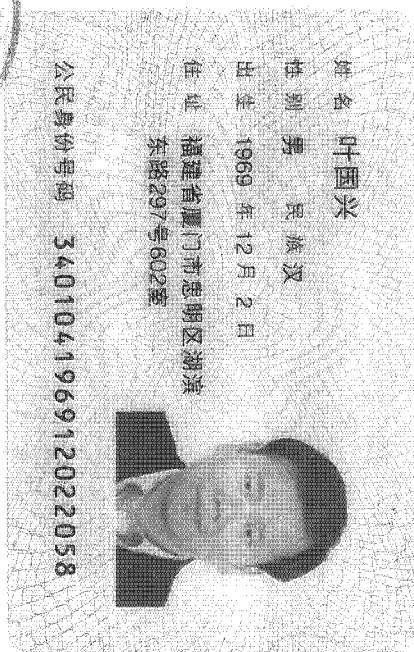 姓名 叶国兴
性别 男 民族 汉
出生 1969 年 12 月 2 日
住址 福建省厦门市思明区湖滨
东路297号602室
公民身份号码 340104196912022058